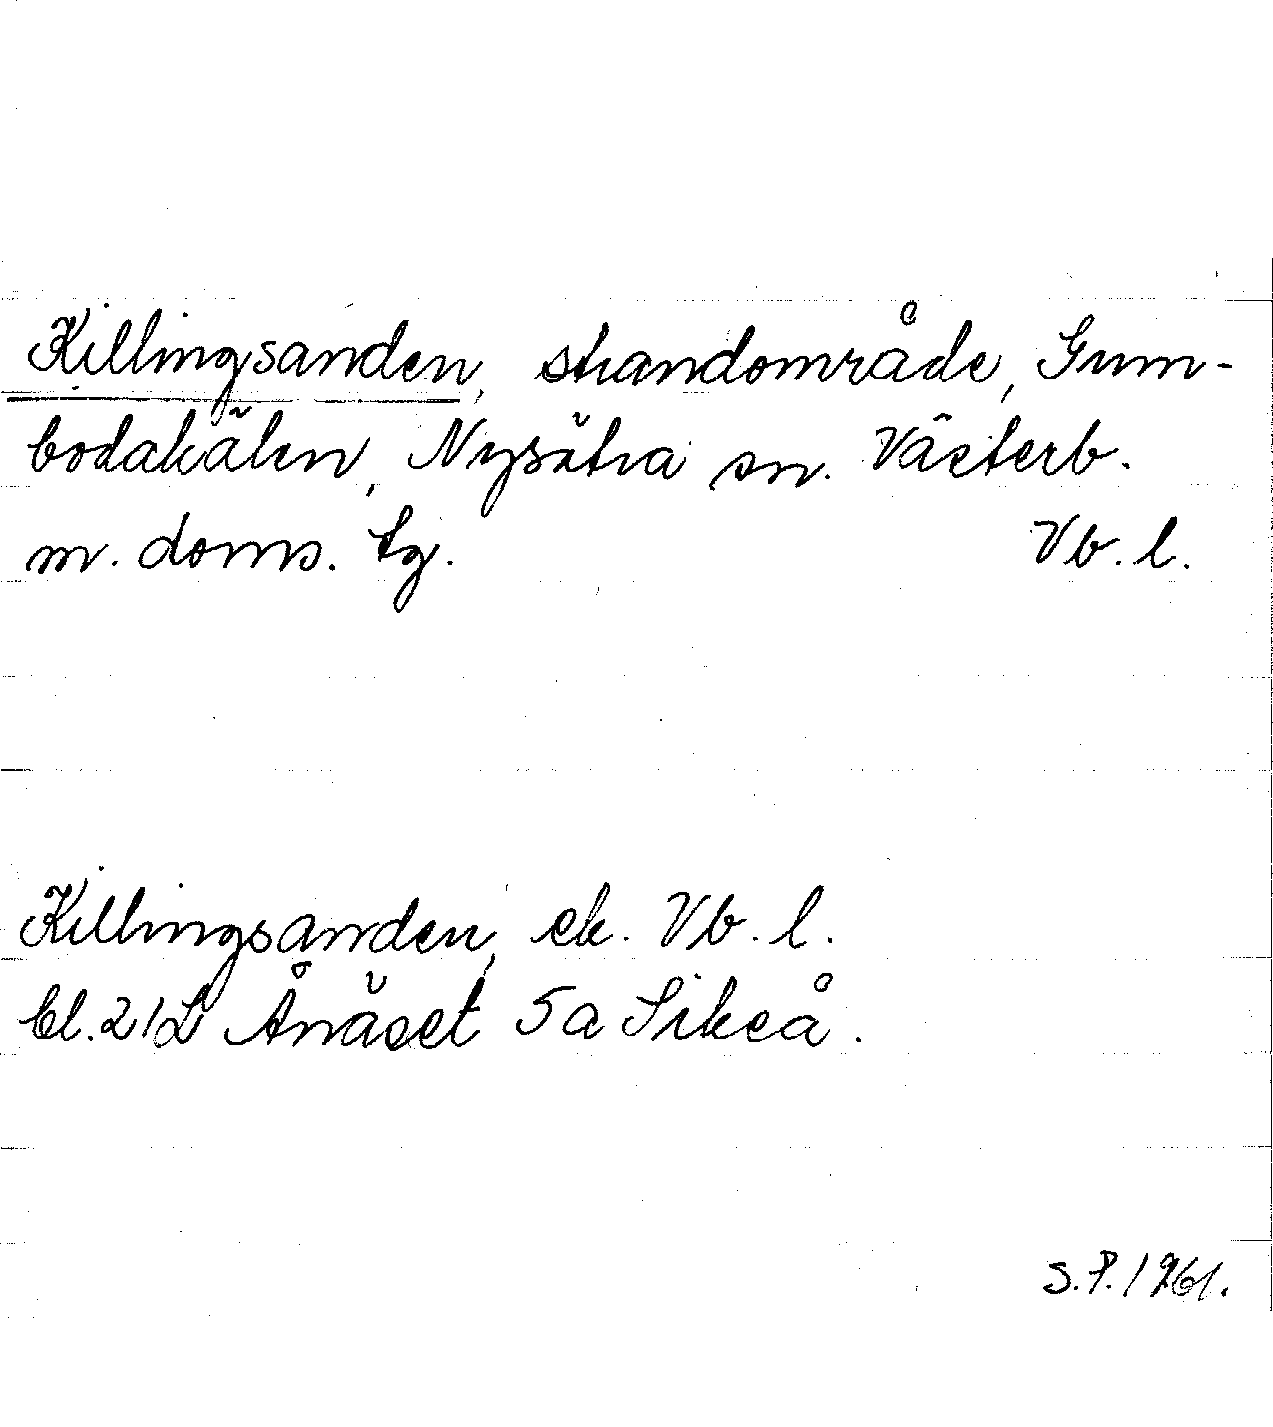 Killingsanden, strandområde, Gum-
bodakälen, Nysätra sn. Västerb.
m. doms. tg. Vb. l.
Killingsanden, ek. Vb. l.
bl. 21L Ånäset 5a Sikeå.
S.P. 1961.